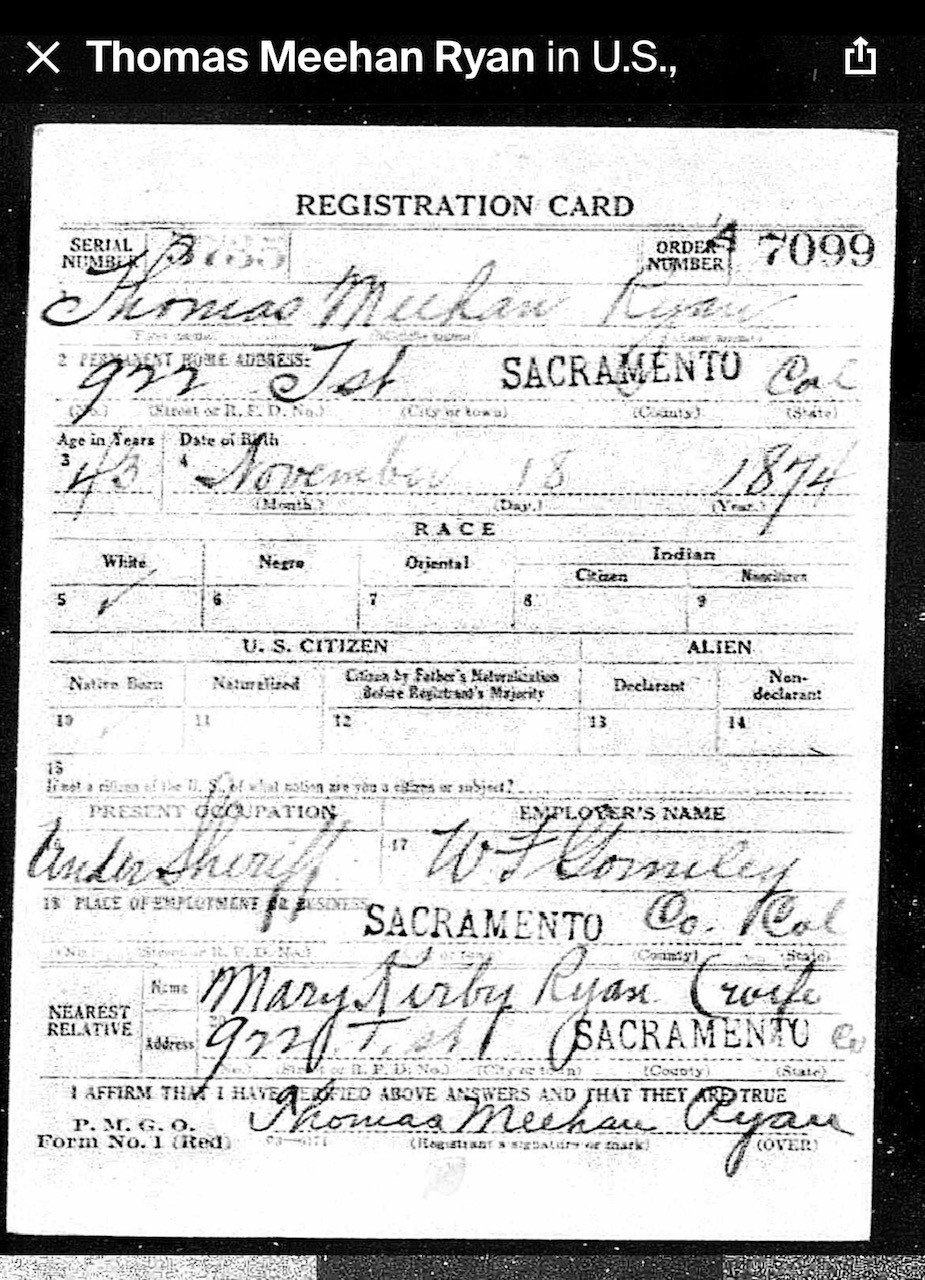 Thomas Meehan Ryan in U.S.,
REGISTRATION CARD
SERIAL NUMBER 3735 ORDER NUMBER A 7099
Thomas Meehan Ryan
(First name) (Middle name) (Last name)
2 PERMANENT HOME ADDRESS:
922 T st SACRAMENTO Cal
(No.) (Street or R. F. D. No.) (City or town) (County) (State)
Age in Years Date of Birth
3 43 4 November 18 1874
(Month.) (Day.) (Year.)
RACE
White Negro Oriental Indian
Citizen Noncitizen
5 ✓ 6 7 8 9
U. S. CITIZEN ALIEN
Native Born Naturalized Citizen by Father's Naturalization Before Registrant's Majority Declarant Non-declarant
10 11 12 13 14
15
If not a citizen of the U. S., of what nation are you a citizen or subject?
PRESENT OCCUPATION EMPLOYER'S NAME
Under Sheriff 17 W F Gormley
18 PLACE OF EMPLOYMENT OR BUSINESS:
SACRAMENTO Co. Cal
(No.) (Street or R. F. D. No.) (City or town) (County) (State)
NEAREST RELATIVE Name Mary Kirby Ryan (wife
Address 922 T. st SACRAMENTO
(No.) (Street or R. F. D. No.) (City or town) (County) (State)
I AFFIRM THAT I HAVE VERIFIED ABOVE ANSWERS AND THAT THEY ARE TRUE
P. M. G. O.
Form No. 1 (Red) Thomas Meehan Ryan
(Registrant's signature or mark) (OVER)